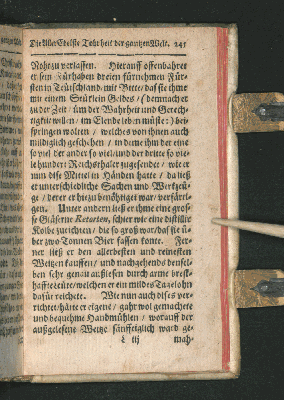 Die AllerEdelste Tohrheit der gantzen Welt. 241
Noht zu verlassen. Hierauff offenbahret
er sein Fürhaben dreien fürnehmen Für-
sten in Teutschland, mit Bitte, daß sie ihme
mit einem Stücklein Geldes / (demnach er
zu der Zeit / üm der Wahrheit und Gerech-
tigkeit willen / im Elende leben müste) bei-
springen wolten / welches von ihnen auch
mildiglich geschehen / indeme ihm der eine
so viel / der ander so viel / und der dritte so vie-
le hundert Reichsthaler zugesendet / wie er
nun diese Mittel in Händen hatte / da ließ
er unterschiedliche Sachen und Werkzeü-
ge / derer er hiezu benöhtiget war / verfärti-
gen. Unter andern ließ er ihme eine gros-
se Gläserne Retorten, schier wie eine distillir
Kolbe zurichten / die so groß war / daß sie ü-
ber zwo Tonnen Bier fassen konte. Fer-
ner ließ er den allerbesten und reinesten
Weitzen kauffen / und nachgehends densel-
ben sehr genau außlesen durch arme brest-
haffte Leüte / welchen er ein mildes Tagelohn
dafür reichete. Wie nun auch dises ver-
richtet / hatte er eigene / gahr wol gemachte
und bequehme Handmühlen / worauff der
außgelesene Weitze sänffteiglich ward ge-
mah-